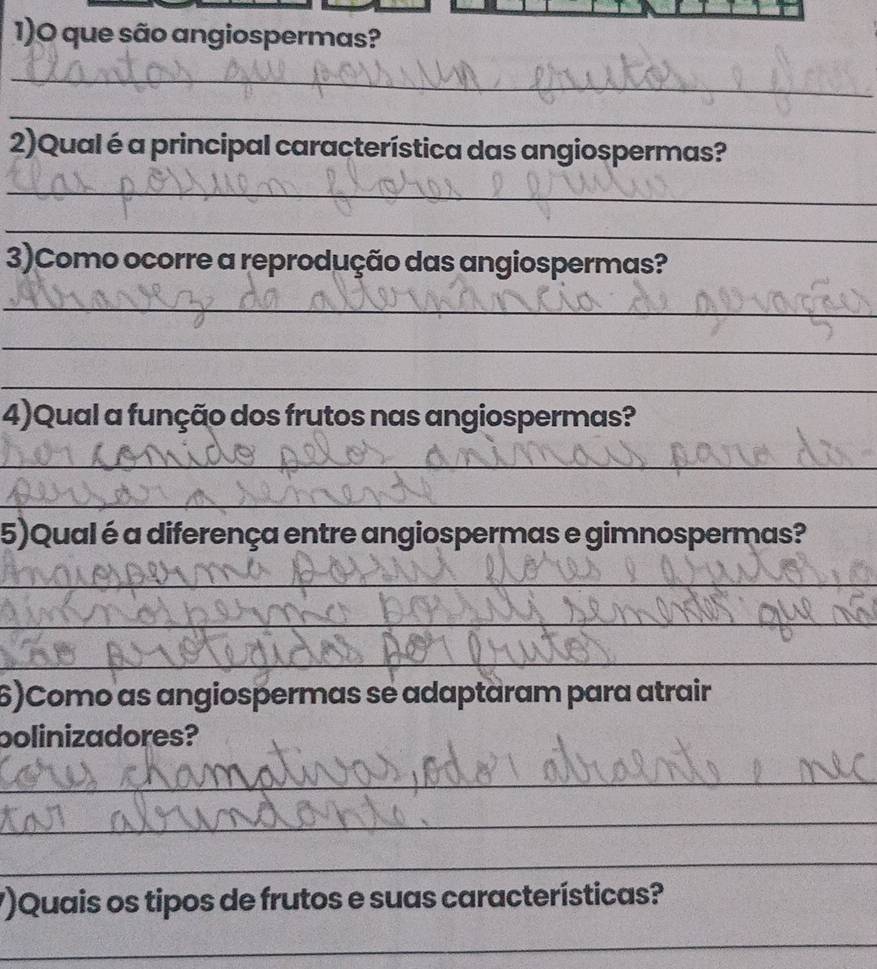 1)O que são angiospermas?
Plantas que possuem frutos e flores.
2)Qual é a principal característica das angiospermas?
Elas possuem flores e frutos
3)Como ocorre a reprodução das angiospermas?
Atravez da alternância de gerações
4)Qual a função dos frutos nas angiospermas?
Ser comido pelos animais para dis-
persar a semente
5)Qual é a diferença entre angiospermas e gimnospermas?
Angiosperma possui flores e frutos, a
gimnosperma possui sementes que não
são protegidas por frutos
6)Como as angiospermas se adaptaram para atrair
polinizadores?
Cores chamativas, odor atraente e nec
tar abundante.
7)Quais os tipos de frutos e suas características?